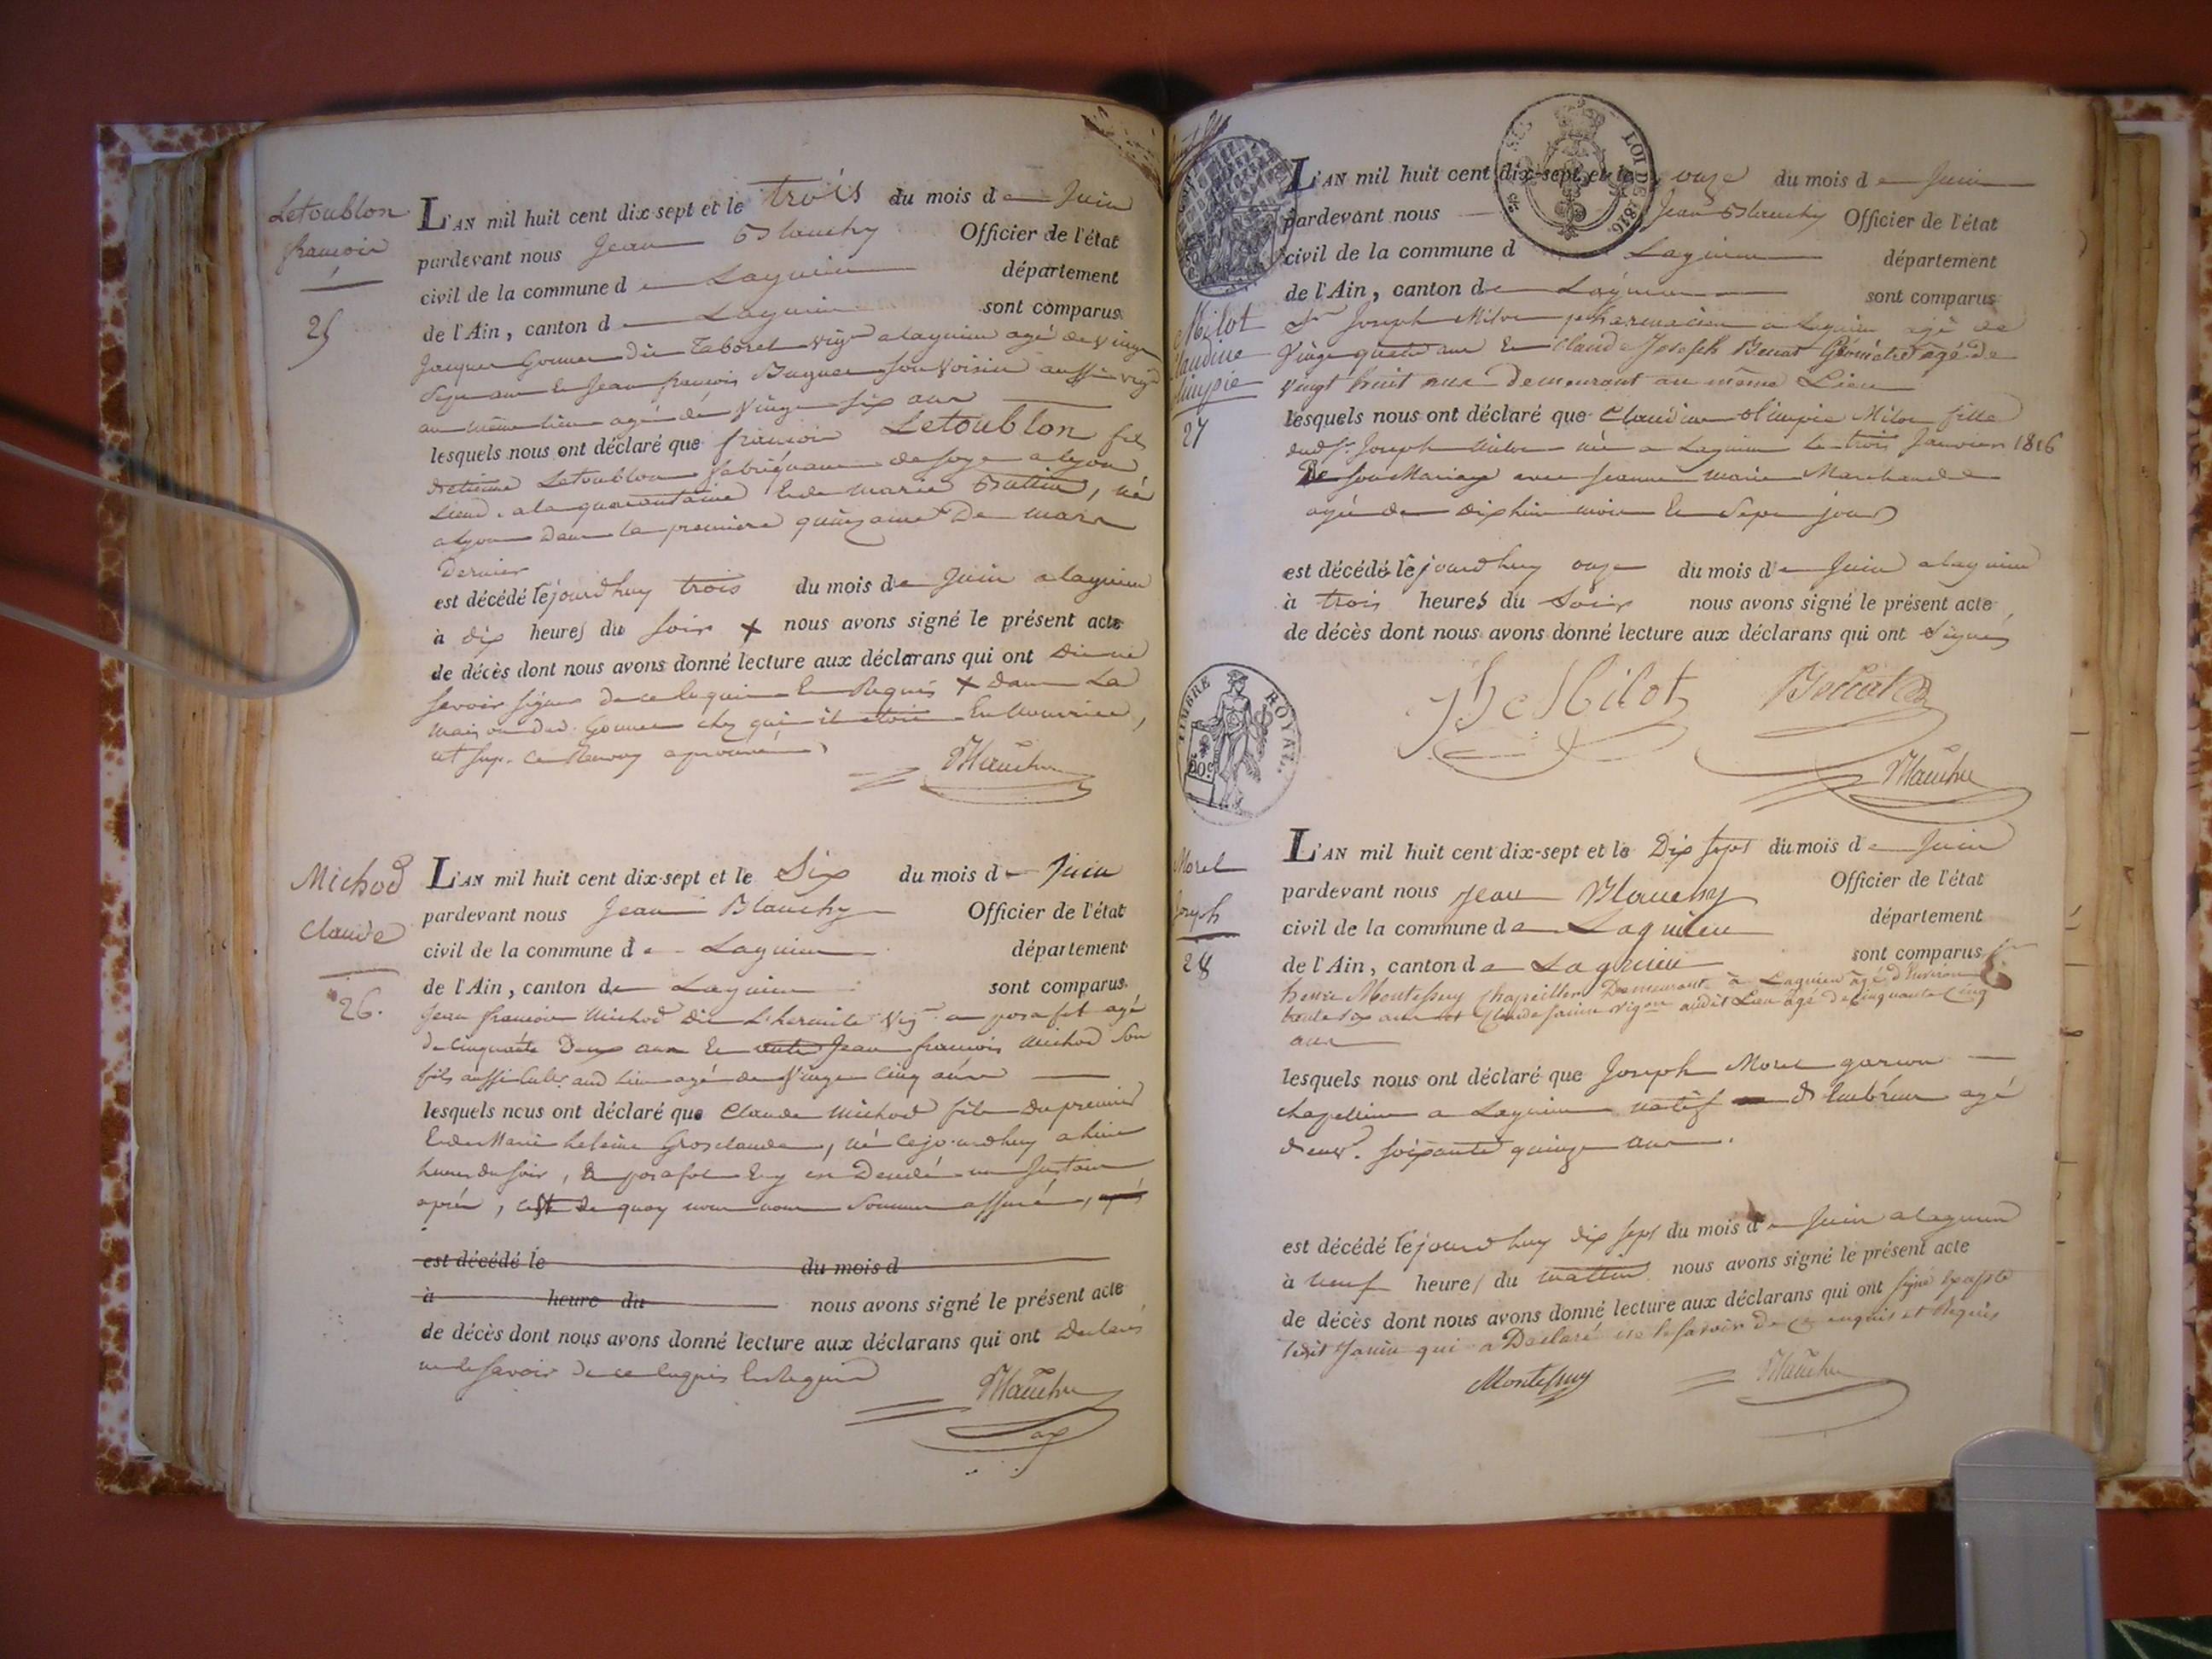 Letoublon
françois
25
L'AN mil huit cent dix-sept et le trois du mois de Juin
pardevant nous Jean Blanchy Officier de l'état
civil de la commune de Lagnieu département
de l'Ain, canton de Lagnieu sont comparus
Jacques dit Taboret vign alagnieu agé de vingt
Sept ans et Jean françois son voisin aussi vign
au même lieu agé de vingt six ans
lesquels nous ont déclaré que françois Letoublon fils
detienne Letoublon fabriquant de soye a lyon
a la quarantaine et de marie , né
a lyon dans la premiere quinzaine De mars
Dernier
est décédé lejourdhuy trois du mois de Juin alagnieu
à dix heures du soir + nous avons signé le présent acte
de décès dont nous avons donné lecture aux déclarans qui ont Dit ne
savoir signer de ce enquis et Requis + dans La
maison dud. chez qui il etoit En nourrice,
ut sup. ce Renvoy aprouvé
Blanchy
Michod
Claude
26.
L'AN mil huit cent dix-sept et le Six du mois de Juin
pardevant nous Jean Blanchy Officier de l'état
civil de la commune de Lagnieu département
de l'Ain, canton de Lagnieu sont comparus
Jean françois Michod dit L'hermite vig a posafol agé
de cinquante Deux ans et Jean françois Michod Son
fils aussi aud lieu agé de Vingt Cinq ans
lesquels nous ont déclaré que Claude Michod fils Du premier
et de Marie heleine Grosclaude, né cejourdhuy a huit
heures du soir, a posafol y est Decedé un Instant
après, de quoy nous nous Sommes assuré,
est décédé le du mois d
à heure du nous avons signé le présent acte
de décès dont nous avons donné lecture aux déclarans qui ont Declaré
ne le savoir de ce enquis et Requis
Blanchy
LOI DE 1816
L'AN mil huit cent dix-sept et le onze du mois de Juin
pardevant nous Jean Blanchy Officier de l'état
civil de la commune d Lagnieu département
de l'Ain, canton de Lagnieu sont comparus
Milot
Claudine
27
Sr Joseph Milot pharmacien a Lagnieu agé de
Vingt quatre ans et Claude Joseph Géomètre agé de
vingt huit ans Demeurant au même Lieu
lesquels nous ont déclaré que Claudine olimpie Milot fille
dud Sr Joseph Milot née a Lagnieu Le trois Janvier 1816
De son Mariage avec Jeanne Marie Marchand
agée de Dix huit mois et Sept jours
est décédé lejourdhuy onze du mois de Juin alagnieu
à trois heures du Soir nous avons signé le présent acte
de décès dont nous avons donné lecture aux déclarans qui ont Signés
Milot
Blanchy
TIMBRE ROYAL.
Morel
Joseph
28
L'AN mil huit cent dix-sept et le Dix sept du mois de Juin
pardevant nous Jean Blanchy Officier de l'état
civil de la commune de Lagnieu département
de l'Ain, canton de Lagnieu sont comparus Sr
henri Montessuy Chapellier Demeurant à Lagnieu agé d'Environ
trente six ans et Claude Janin vigon audit Lieu agé de Cinquante Cinq
ans
lesquels nous ont déclaré que Joseph Morel garçon
chapellier a Lagnieu natif agé
d'env. soixante quinze ans.
est décédé lejourdhuy dix sept du mois de Juin alagnieu
à neuf heures du mattin nous avons signé le présent acte
de décès dont nous avons donné lecture aux déclarans qui ont signé Excepté
ledit Janin qui a Declaré ne le savoir de ce enquis et Requis
Montessuy
Blanchy